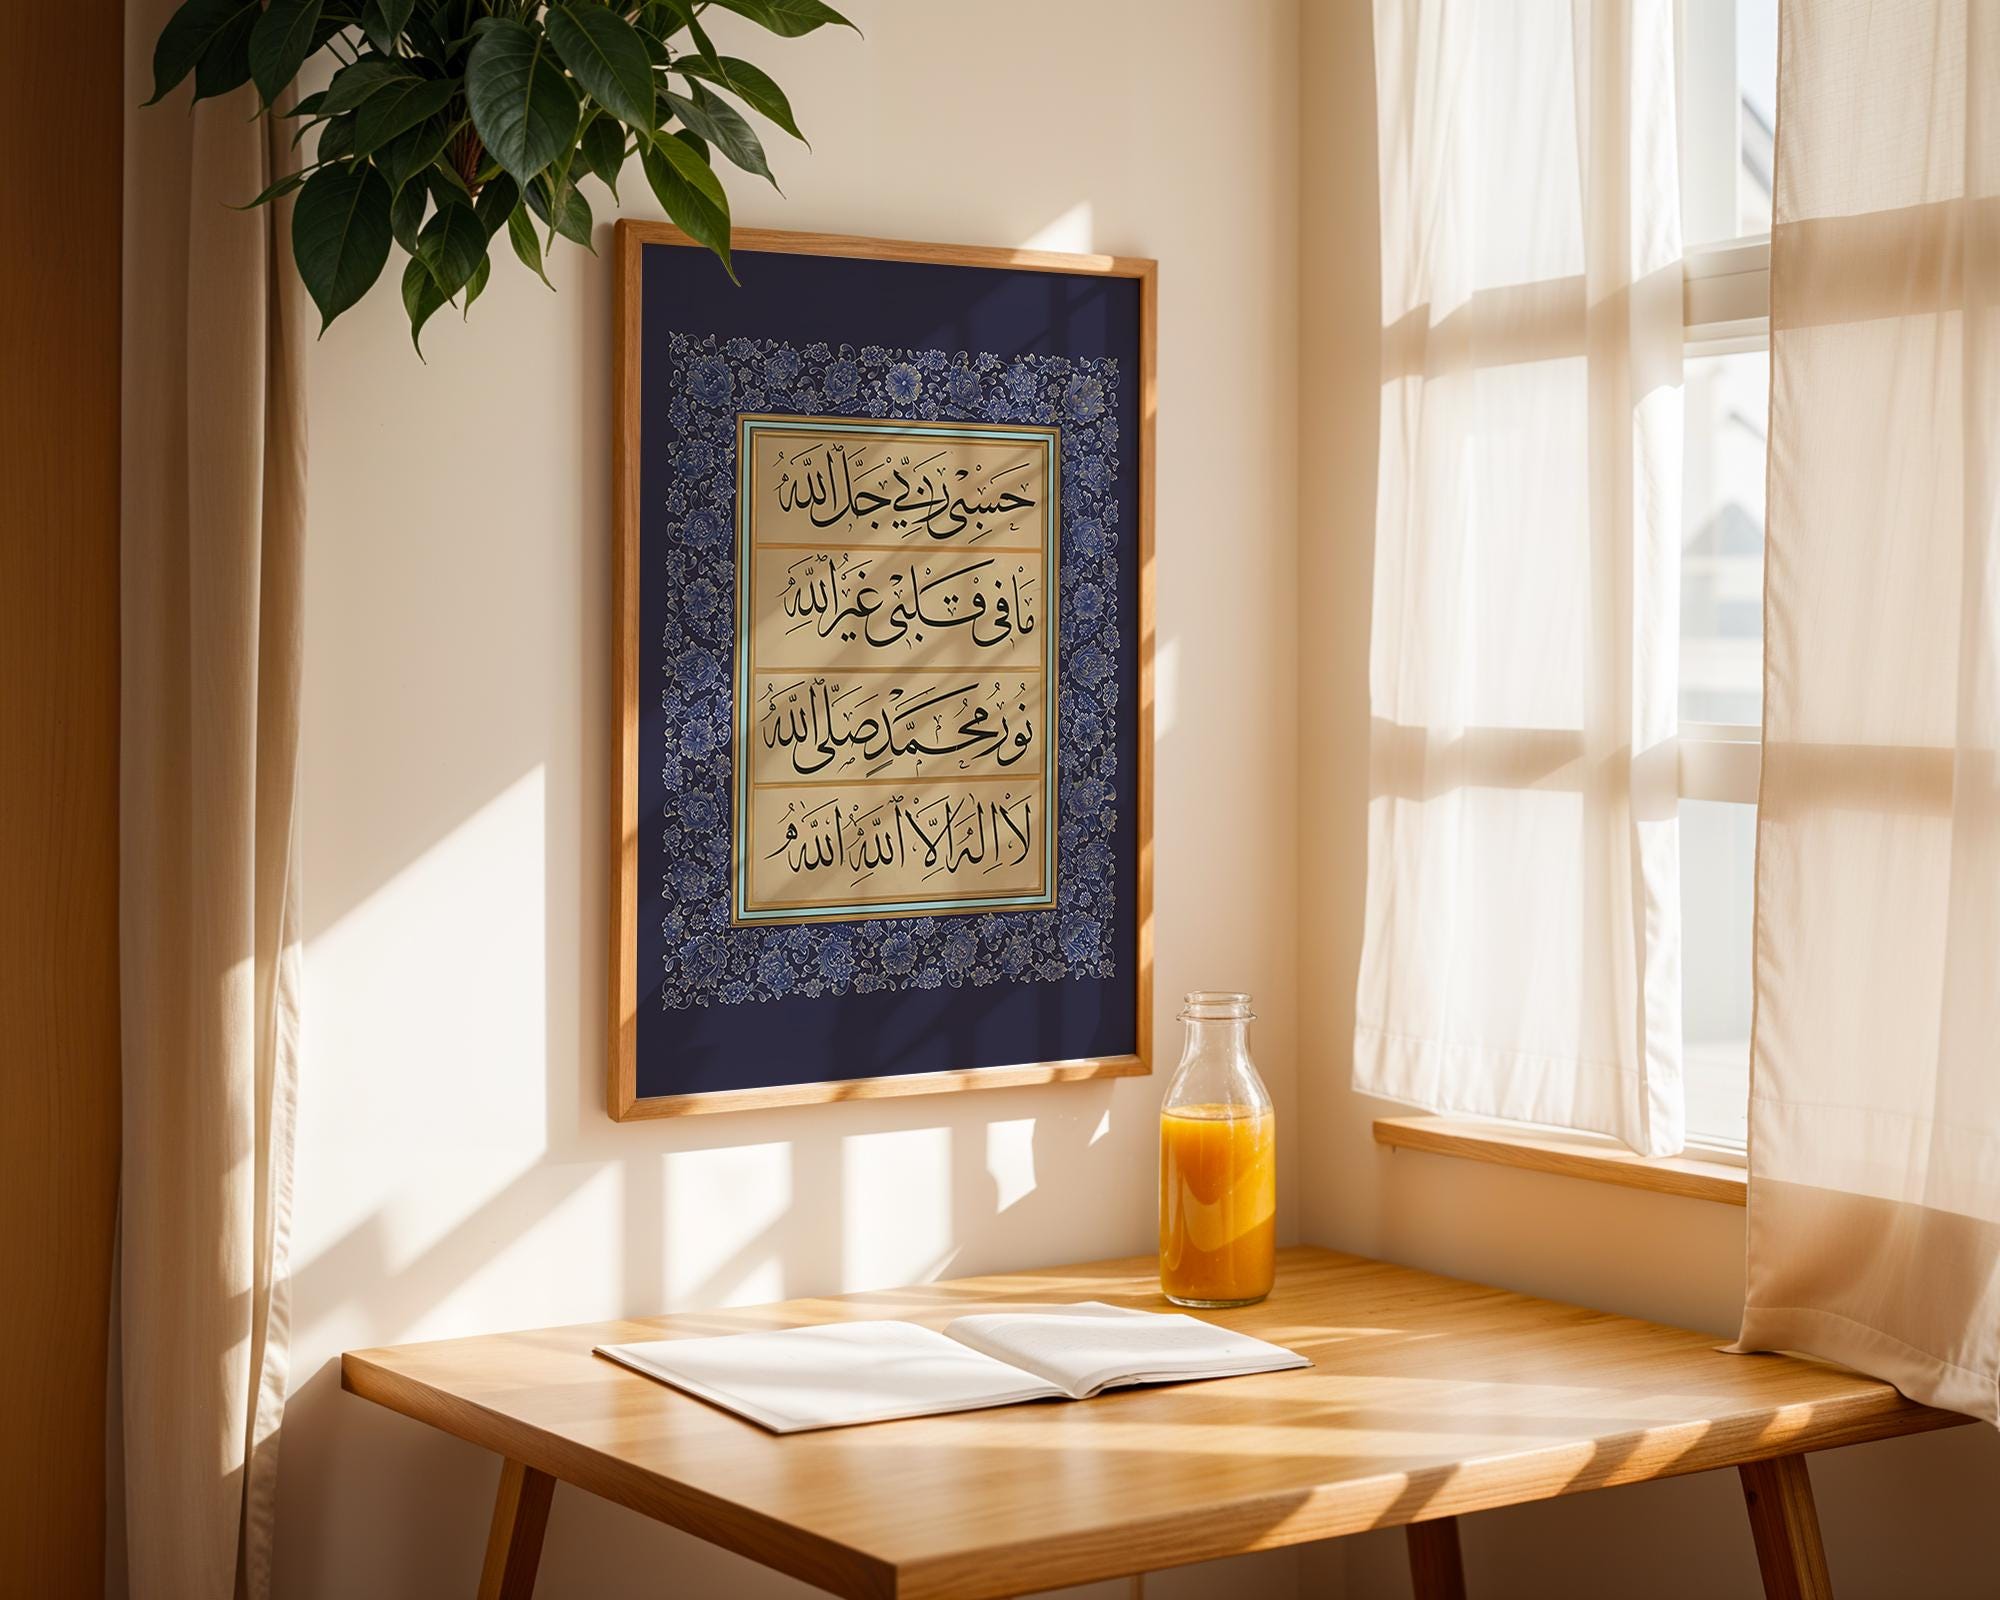 حَسْبِي رَبِّي جَلَّ اللهُ
مَا فِي قَلْبِي غَيْرُ اللهِ
نُورُ مُحَمَّدٍ صَلَّى اللهُ
لَا اِلٰهَ اِلَّا اللهُ اللهُ